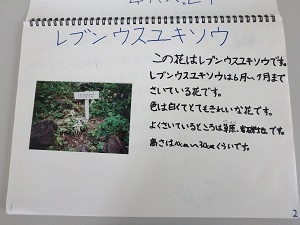 レブンウスユキソウ
この花はレブンウスユキソウです。
レブンウスユキソウは6月〜9月まで
さいている花です。
色は白くてとてもきれいな花です。
よくさいているところは草原、
高さは10cm〜30cmくらいです。
1
2